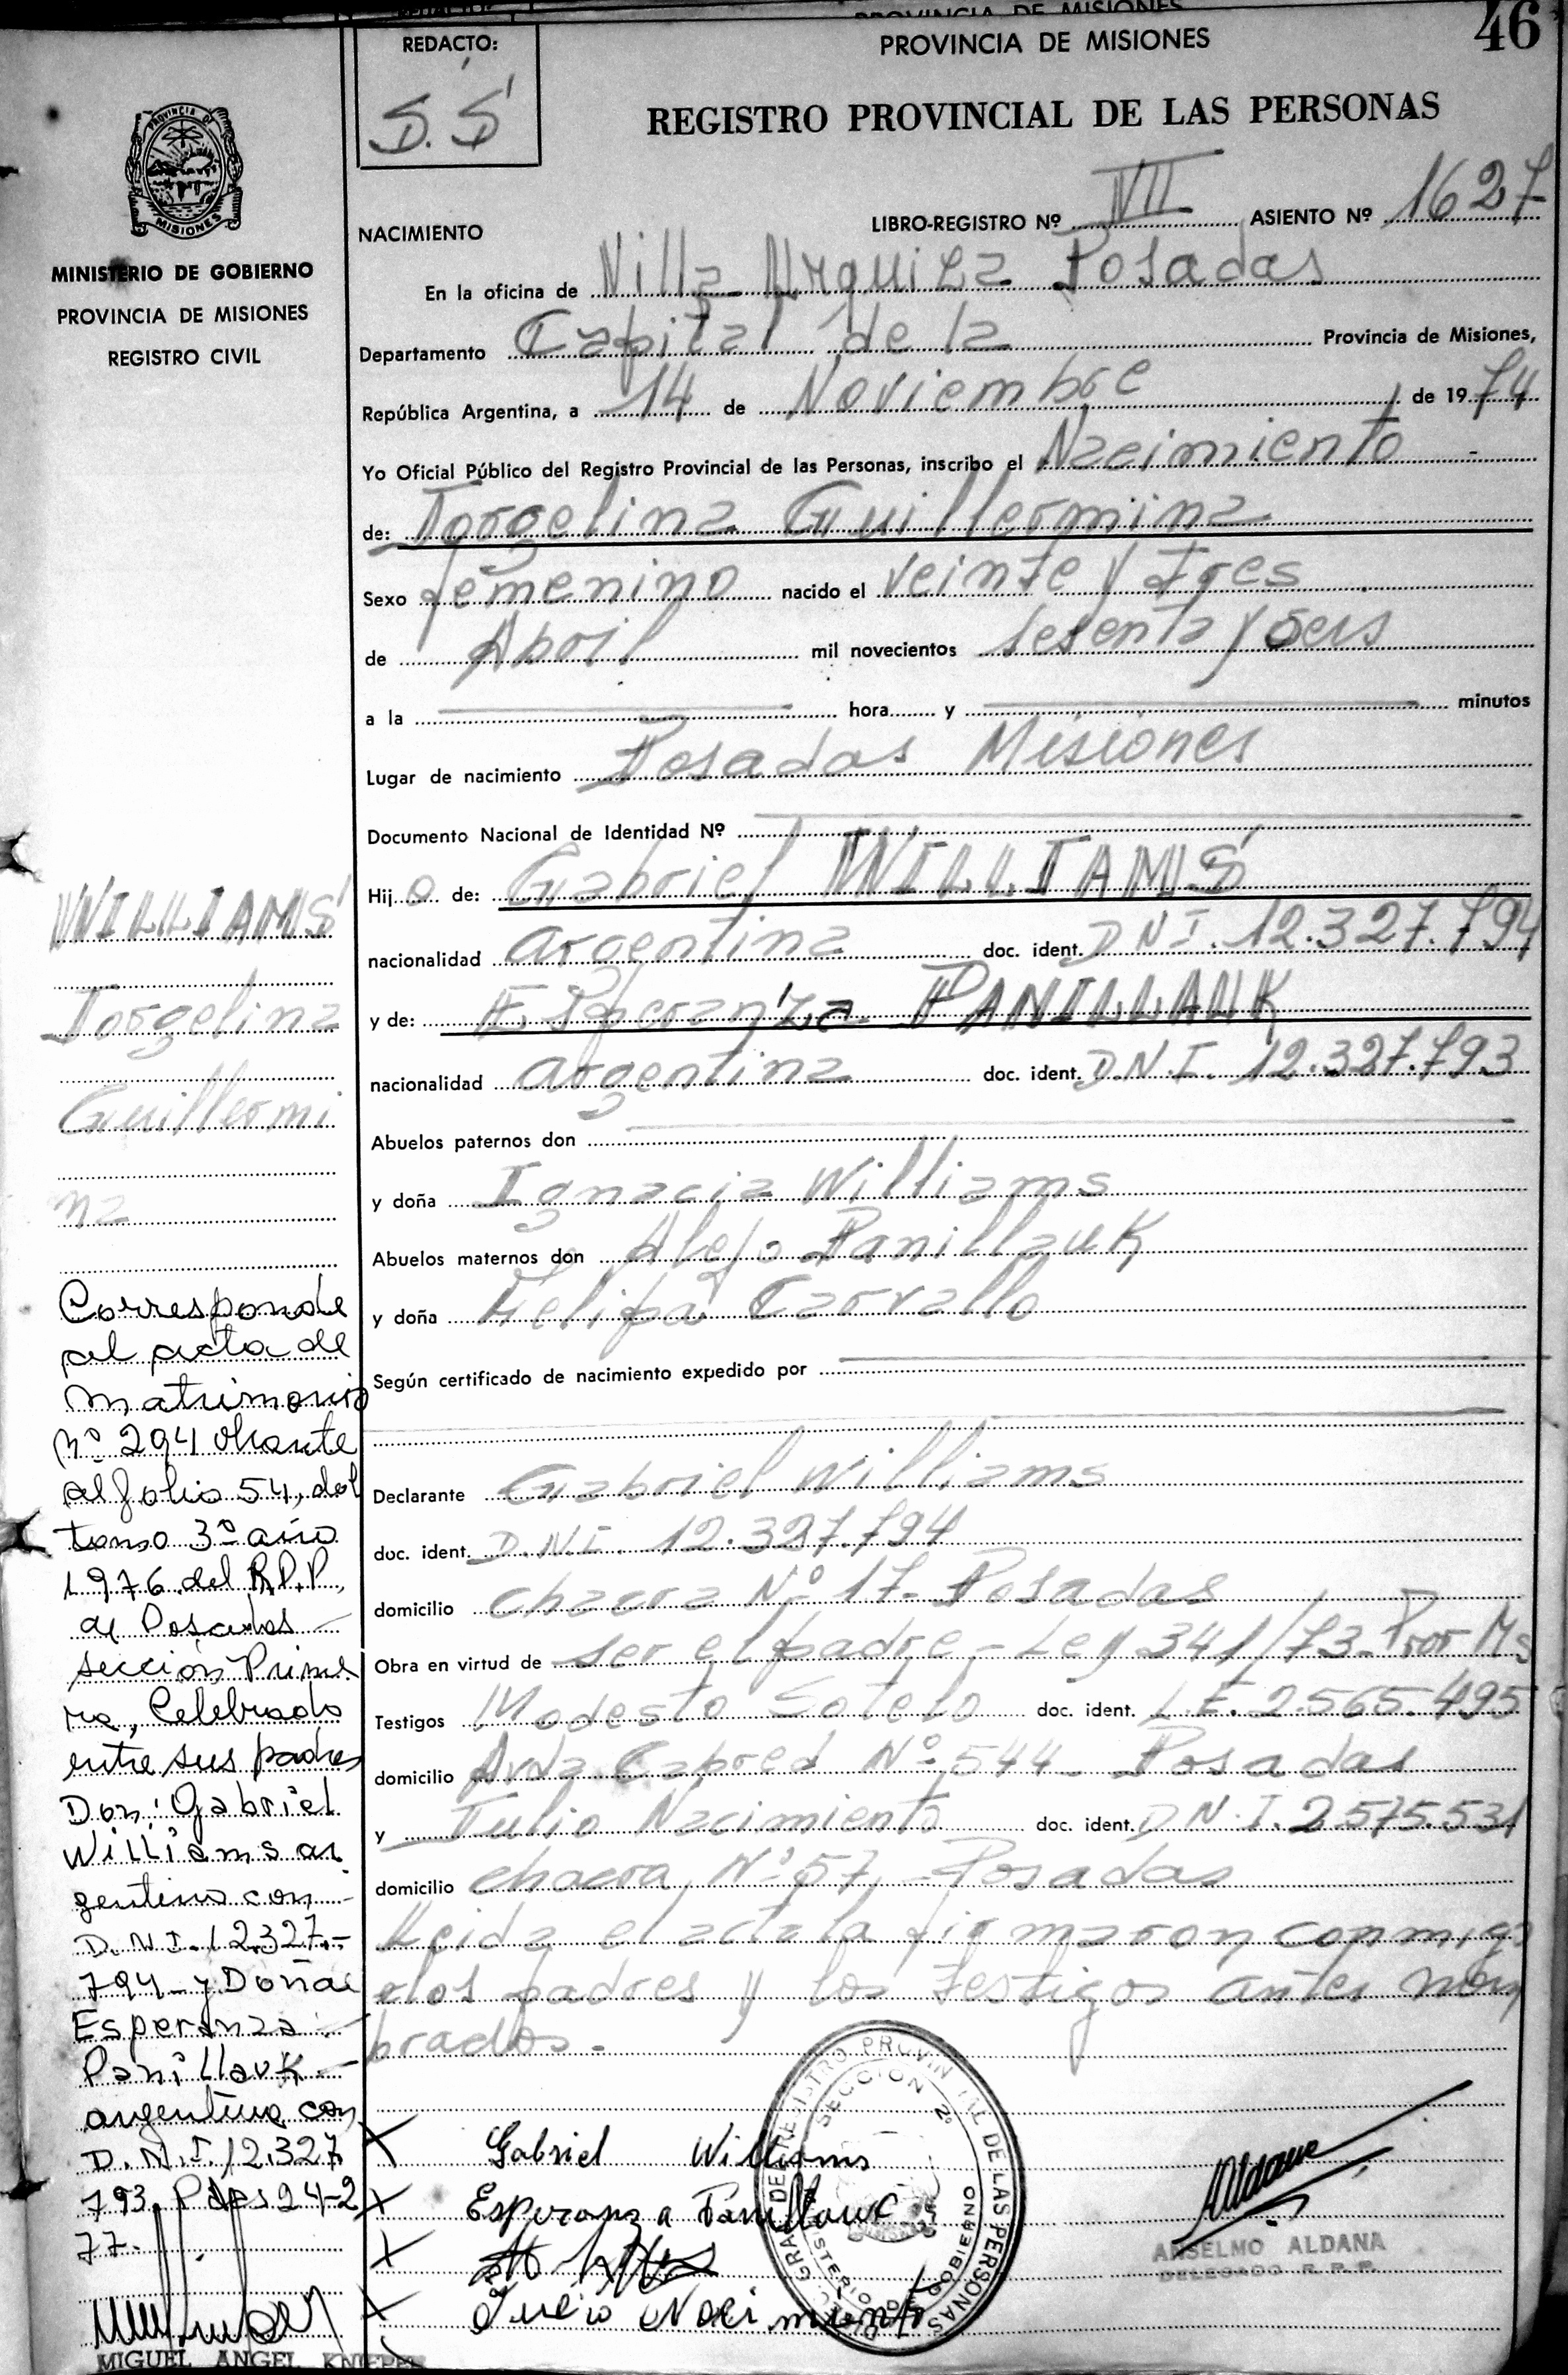 PROVINCIA DE MISIONES
46
REDACTO:
S.S
PROVINCIA DE MISIONES
REGISTRO PROVINCIAL DE LAS PERSONAS
PROVINCIA DE
MISIONES
MINISTERIO DE GOBIERNO
PROVINCIA DE MISIONES
REGISTRO CIVIL
NACIMIENTO
LIBRO-REGISTRO Nº VII ASIENTO Nº 1627
En la oficina de Villa Urquiza Posadas
Departamento Capital de la Provincia de Misiones,
República Argentina, a 14 de Noviembre de 1974
Yo Oficial Público del Registro Provincial de las Personas, inscribo el Nacimiento
de: Jorgelina Guillermina
Sexo femenino nacido el veinte y tres
de Abril mil novecientos sesenta y seis
a la hora y minutos
Lugar de nacimiento Posadas Misiones
Documento Nacional de Identidad Nº
Hija de: Gabriel WILLIAMS
nacionalidad argentina doc. ident. D.N.I. 12.327.794
y de: Esperanza PANILLAUK
nacionalidad argentina doc. ident. D.N.I. 12.327.793
Abuelos paternos don
y doña Ignacia Williams
Abuelos maternos don Alejo Panillauk
y doña Felipa Carvallo
Según certificado de nacimiento expedido por
Declarante Gabriel Williams
doc. ident. D.N.I. 12.327.794
domicilio chacra Nº 17- Posadas
Obra en virtud de ser el padre - Ley 341/73- Pror Ms
Testigos Modesto Sotelo doc. ident. L.E. 2.565.495
domicilio Avda Cabred Nº 544- Posadas
y Julio Nacimiento doc. ident. D.N.I. 2.575.531
domicilio chacra Nº 57, -Posadas
Leida el acta la firmaron conmigo
los padres y los testigos antes nom
brados.-
WILLIAMS
Jorgelina
Guillermi
na
Corresponde
al acta de
matrimonio
Nº 294 obrante
al folio 54, del
tomo 3º año
1976 del R.P.P.
de Posadas
sección Prime
ra, Celebrado
entre sus padres
Don: Gabriel
Williams ar
gentino con
D.N.I. 12.327.-
794- y Doña
Esperanza
Panillauk
argentina con
D.N.I 12.327
793. Pdas 24-2
77.
MIGUEL ANGEL
Gabriel Williams
Esperanza Panillauc
Julio Nacimiento
REGISTRO PROVINCIAL DE LAS PERSONAS
SECCION 2º
MINISTERIO DE GOBIERNO
Aldana
ANSELMO ALDANA
DELEGADO R.P.P.